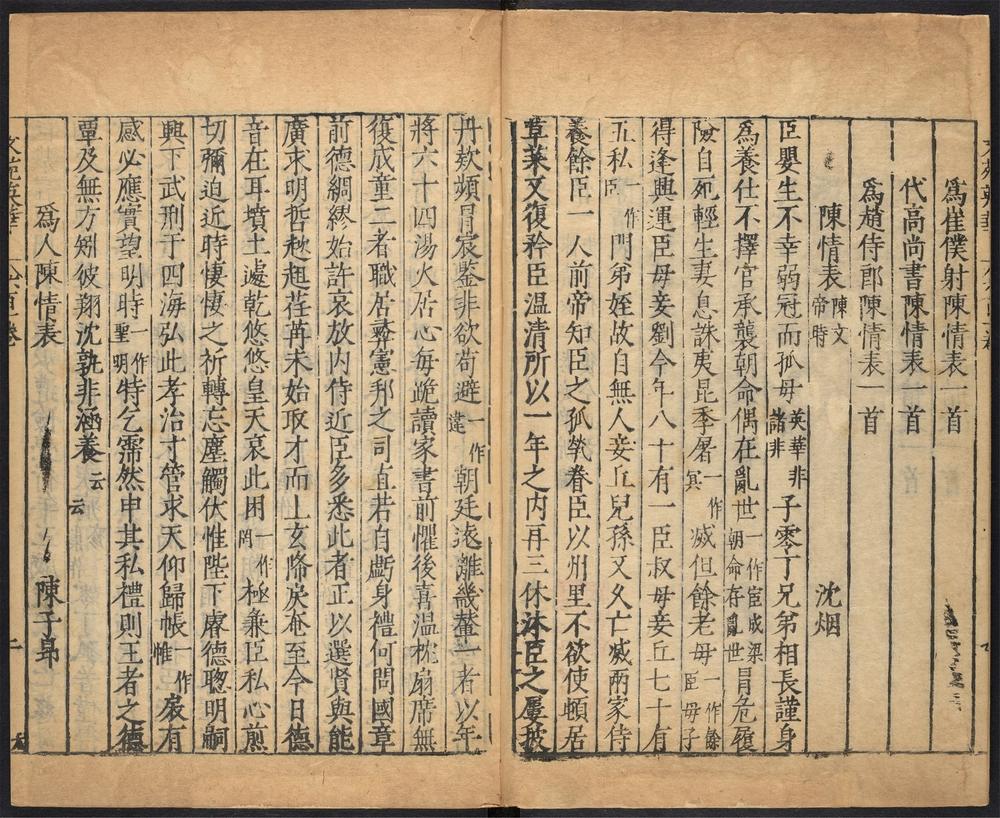 爲崔僕射陳情表一首
代高尚書陳情表一首
爲趙侍郎陳情表一首
陳情表 陳文帝時 沈烟
臣嬰生不幸弱冠而孤母 英華非諸非 子零丁兄弟相長謹身
爲養仕不擇官承襲朝命偶在亂世 一作宦成梁朝命存亂世 冐危履
險自死輕生妻息誅夷昆季屠 一作冥 滅但餘老母 一作餘臣母子
得逢興運臣母妾劉今年八十有一臣叔母妾丘七十有
五私 一作臣 門弟姪故自無人妾丘兒孫又久亡滅兩家侍
養餘臣一人前帝知臣之孤煢眷臣以州里不欲使頓居
草萊又復矜臣溫清所以一年之内再三休沐臣之屢披
丹款頻冐宸鑒非欲苟避 一作違 朝廷遠離幾輦一者以年
將六十四湯火居心每跪讀家書前懼後喜溫枕扇席無
復成童二者職居彞憲邦之司直若自虧身禮何問國章
前德綢繆始許哀放内侍近臣多悉此者正以選賢與能
廣求明哲趑趄荏苒未始取才而上玄降戾奄至今日德
音在耳墳土遽乾悠悠皇天哀此困 一作罔 極兼臣私心煎
切彌迫近時悽悽之祈轉忘塵觸伏惟陛下睿德聰明嗣
興下武刑于四海弘此孝治才管求天仰歸帳 一作惟 扆有
感必應實望明時 一作聖明 特乞霈然申其私禮則王者之德
覃及無方矧彼翔沈孰非涵養 云云
爲人陳情表 陳子昻